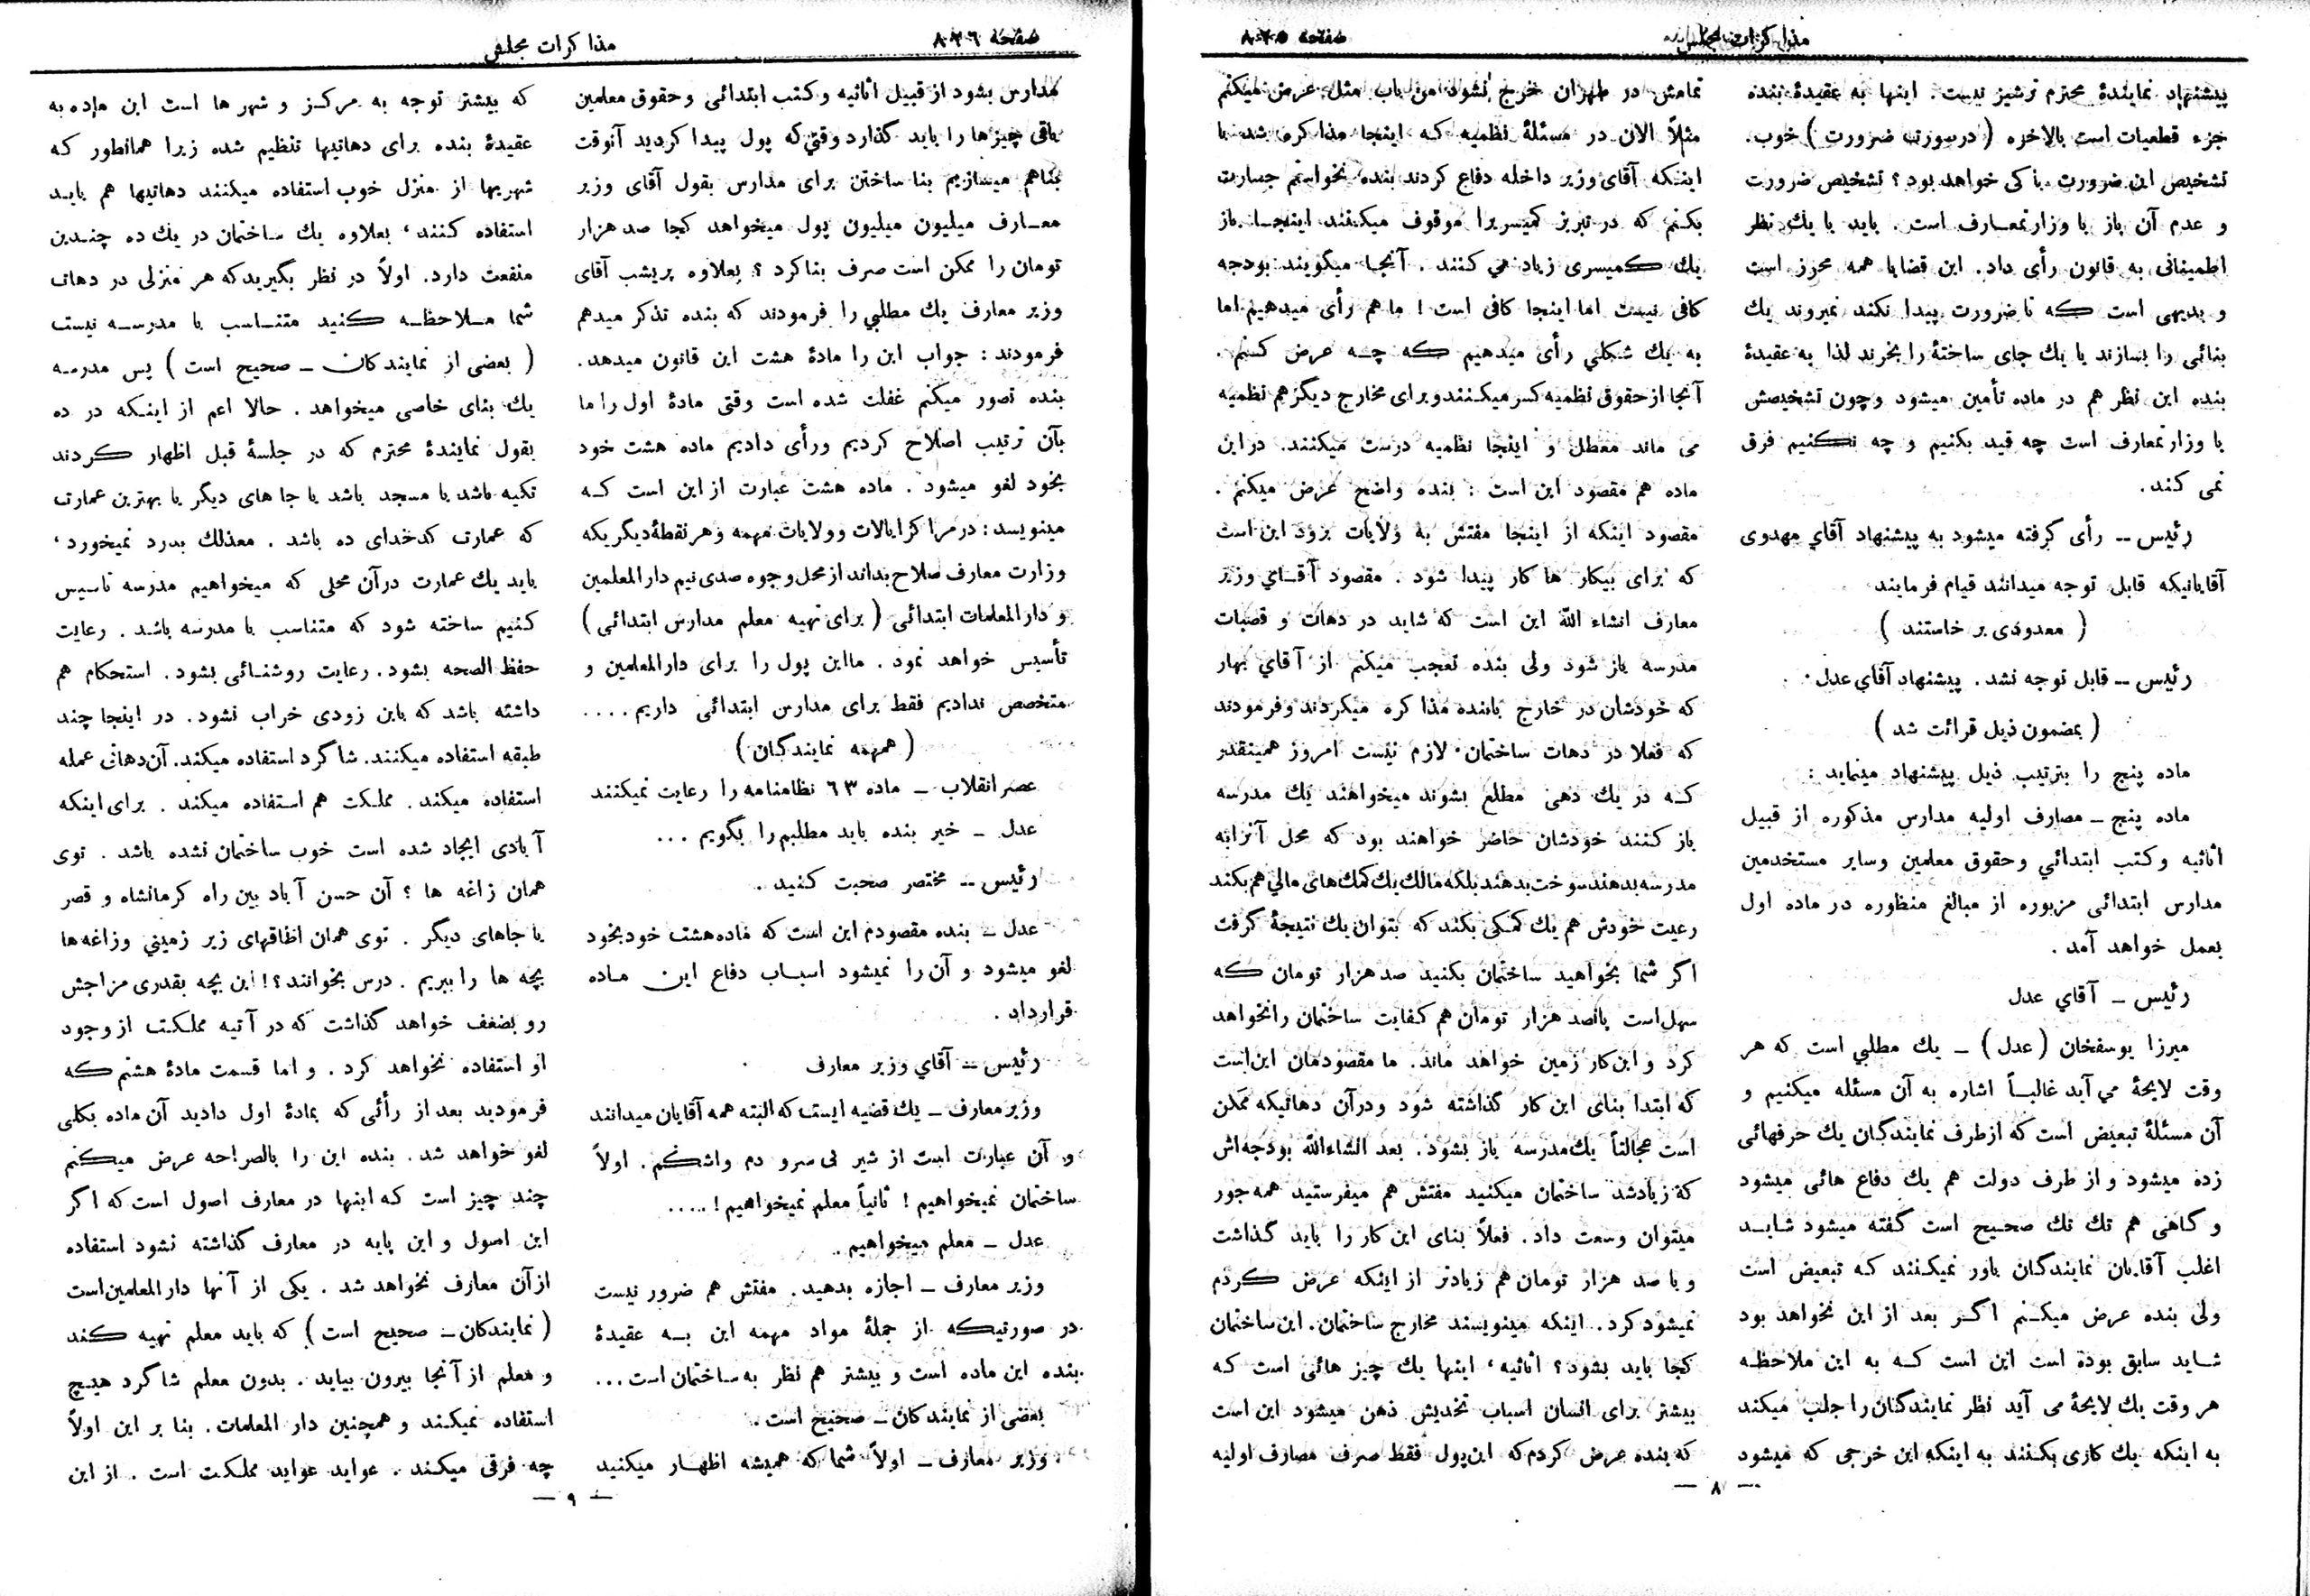 مذاکرات مجلس
صفحه ۸۲۵
پیشنهاد نمایندهٔ محترم ترشیز نیست. اینها به عقیدهٔ بنده
جزء قطعیات است بالاخره (درصورت ضرورت) خوب.
تشخیص این ضرورت با کی خواهد بود؟ تشخیص ضرورت
و عدم آن باز با وزارتمعارف است. باید با یك نظر
اطمینانی به قانون رأی داد. این قضایا همه محرز است
و بدیهی است که تا ضرورت پیدا نکند نمیروند یك
بنائی را بسازند یا یك جای ساختهٔ را بخرند لذا به عقیدهٔ
بنده این نظر هم در ماده تأمین میشود و چون تشخیصش
با وزارتمعارف است چه قید بکنیم و چه نکنیم فرق
نمی کند.
رئیس ــ رأی گرفته میشود به پیشنهاد آقای مهدوی
آقایانیکه قابل توجه میدانند قیام فرمایند
(معدودی بر خاستند)
رئیس ــ قابل توجه نشد. پیشنهاد آقای عدل.
(بمضمون ذیل قرائت شد)
ماده پنج را بترتیب ذیل پیشنهاد مینماید:
ماده پنج ــ مصارف اولیه مدارس مذکوره از قبیل
اثاثیه و کتب ابتدائی و حقوق معلمین و سایر مستخدمین
مدارس ابتدائی مزبوره از مبالغ منظوره در ماده اول
بعمل خواهد آمد.
رئیس ــ آقای عدل
میرزا یوسفخان (عدل) ــ یك مطلبی است که هر
وقت لایحهٔ می آید غالباً اشاره به آن مسئله میکنیم و
آن مسئلهٔ تبعیض است که از طرف نمایندگان یك حرفهائی
زده میشود و از طرف دولت هم یك دفاع هائی میشود
و گاهی هم تك تك صحیح است گفته میشود شاید
اغلب آقایان نمایندگان باور نمیکنند که تبعیض است
ولی بنده عرض میکنم اگر بعد از این نخواهد بود
شاید سابق بوده است این است که به این ملاحظه
هر وقت یك لایحهٔ می آید نظر نمایندگان را جلب میکند
به اینکه یك کاری بکنند به اینکه این خرجی که میشود
تمامش در طهران خرج نشود من باب مثل عرض میکنم
مثلاً الان در مسئلهٔ نظمیه که اینجا مذاکره شد با
اینکه آقای وزیر داخله دفاع کردند بنده نخواستم جسارت
بکنم که در تبریز کمیسر را موقوف میکنند اینجا باز
یك کمیسری زیاد می کنند. آنجا میگویند بودجه
کافی نیست اما اینجا کافی است! ما هم رأی میدهیم اما
به یك شکلی رأی میدهیم که چه عرض کنم.
آنجا از حقوق نظمیه کسر میکنند و برای مخارج دیگر هم نظمیه
می ماند معطل و اینجا نظمیه درست میکنند. در این
ماده هم مقصود این است: بنده واضح عرض میکنم.
مقصود اینکه از اینجا مفتش به ولایات برود این است
که برای بیکار ها کار پیدا شود. مقصود آقای وزیر
معارف انشاء الله این است که شاید در دهات و قصبات
مدرسه باز شود ولی بنده تعجب میکنم از آقای بهار
که خودشان در خارج با بنده مذاکره میکردند و فرمودند
که فعلا در دهات ساختمان لازم نیست امروز همینقدر
که در یك دهی مطلع بشوند میخواهند یك مدرسه
باز کنند خودشان حاضر خواهند بود که محل آنرا به
مدرسه بدهند سوخت بدهند بلکه مالك یك کمك های مالی هم بکند
رعیت خودش هم یك کمکی بکند که بتوان یك نتیجهٔ گرفت
اگر شما بخواهید ساختمان بکنید صد هزار تومان که
سهل است پانصد هزار تومان هم کفایت ساختمان را نخواهد
کرد و این کار زمین خواهد ماند. ما مقصودمان این است
که ابتدا بنای این کار گذاشته شود و در آن دهاتیکه ممکن
است عجالتاً یك مدرسه باز بشود. بعد انشاءالله بودجه اش
که زیاد شد ساختمان میکنید مفتش هم میفرستید همه جور
میتوان وسعت داد. فعلاً بنای این کار را باید گذاشت
و با صد هزار تومان هم زیادتر از اینکه عرض کردم
نمیشود کرد. اینکه مینویسند مخارج ساختمان. این ساختمان
کجا باید بشود؟ اثاثیه، اینها یك چیز هائی است که
بیشتر برای انسان اسباب تخدیش ذهن میشود این است
که بنده عرض کردم که این پول فقط صرف مصارف اولیه
— ۸ —
صفحه ۸۲٦
مذاکرات مجلس
مدارس بشود از قبیل اثاثیه و کتب ابتدائی و حقوق معلمین
باقی چیزها را باید گذارد وقتی که پول پیدا کردید آنوقت
بنا هم میسازیم بنا ساختن برای مدارس بقول آقای وزیر
معارف میلیون میلیون پول میخواهد کجا صد هزار
تومان را ممکن است صرف بنا کرد؟ بعلاوه پریشب آقای
وزیر معارف یك مطلبی را فرمودند که بنده تذکر میدهم
فرمودند: جواب این را مادهٔ هشت این قانون میدهد.
بنده تصور میکنم غفلت شده است وقتی مادهٔ اول را ما
بآن ترتیب اصلاح کردیم و رأی دادیم ماده هشت خود
بخود لغو میشود. ماده هشت عبارت از این است که
مینویسد: در مراکز ایالات و ولایات مهمه و هر نقطهٔ دیگریکه
وزارت معارف صلاح بداند از محل وجوه صدی نیم دارالمعلمین
و دارالمعلمات ابتدائی (برای تهیه معلم مدارس ابتدائی)
تأسیس خواهد نمود. ما این پول را برای دارالمعلمین و
متخصص ندادیم فقط برای مدارس ابتدائی داریم....
(همهمه نمایندگان)
عصر انقلاب ــ ماده ٦۳ نظامنامه را رعایت نمیکنند
عدل ــ خیر بنده باید مطلبم را بگویم ...
رئیس ــ مختصر صحبت کنید.
عدل ــ بنده مقصودم این است که ماده هشت خود بخود
لغو میشود و آن را نمیشود اسباب دفاع این ماده
قرار داد.
رئیس ــ آقای وزیر معارف
وزیر معارف ــ یك قضیه ایست که البته همه آقایان میدانند
و آن عبارت است از شیر بی سر و دم و اشکم. اولاً
ساختمان نمیخواهیم! ثانیاً معلم نمیخواهیم! .....
عدل ــ معلم میخواهیم.
وزیر معارف ــ اجازه بدهید. مفتش هم ضرور نیست
در صورتیکه از جملهٔ مواد مهمه این به عقیدهٔ
بنده این ماده است و بیشتر هم نظر به ساختمان است...
بعضی از نمایندگان ــ صحیح است.
وزیر معارف ــ اولاً شما که همیشه اظهار میکنید
که بیشتر توجه به مرکز و شهر ها است این ماده به
عقیدهٔ بنده برای دهاتیها تنظیم شده زیرا همانطور که
شهریها از منزل خوب استفاده میکنند دهاتیها هم باید
استفاده کنند، بعلاوه یك ساختمان در یك ده چندین
منفعت دارد. اولاً در نظر بگیرید که هر منزلی در دهات
شما ملاحظه کنید متناسب با مدرسه نیست
(بعضی از نمایندگان ــ صحیح است) پس مدرسه
یك بنای خاصی میخواهد. حالا اعم از اینکه در ده
بقول نمایندهٔ محترم که در جلسهٔ قبل اظهار کردند
تکیه باشد یا مسجد باشد یا جا های دیگر یا بهترین عمارت
که عمارت کدخدای ده باشد. معذلك بدرد نمیخورد،
باید یك عمارت در آن محلی که میخواهیم مدرسه تاسیس
کنیم ساخته شود که متناسب با مدرسه باشد. رعایت
حفظ الصحه بشود. رعایت روشنائی بشود. استحکام هم
داشته باشد که باین زودی خراب نشود. در اینجا چند
طبقه استفاده میکنند. شاگرد استفاده میکند. آن دهاتی عمله
استفاده میکند. مملکت هم استفاده میکند. برای اینکه
آبادی ایجاد شده است خوب ساختمان نشده باشد. توی
همان زاغه ها؟ آن حسن آباد بین راه کرمانشاه و قصر
یا جاهای دیگر. توی همان اطاقهای زیر زمینی و زاغه ها
بچه ها را ببریم. درس بخوانند؟! این بچه بقدری مزاجش
رو بضعف خواهد گذاشت که در آتیه مملکت از وجود
او استفاده نخواهد کرد. و اما قسمت مادهٔ هشتم که
فرمودید بعد از رأئی که بمادهٔ اول دادید آن ماده بکلی
لغو خواهد شد. بنده این را بالصراحه عرض میکنم
چند چیز است که اینها در معارف اصول است که اگر
این اصول و این پایه در معارف گذاشته نشود استفاده
از آن معارف نخواهد شد. یکی از آنها دارالمعلمین است
(نمایندگان ــ صحیح است) که باید معلم تهیه کند
و معلم از آنجا بیرون بیاید. بدون معلم شاگرد هیچ
استفاده نمیکند و همچنین دار المعلمات. بنا بر این اولاً
چه فرقی میکند. عواید عواید مملکت است. از این
— ۹ —